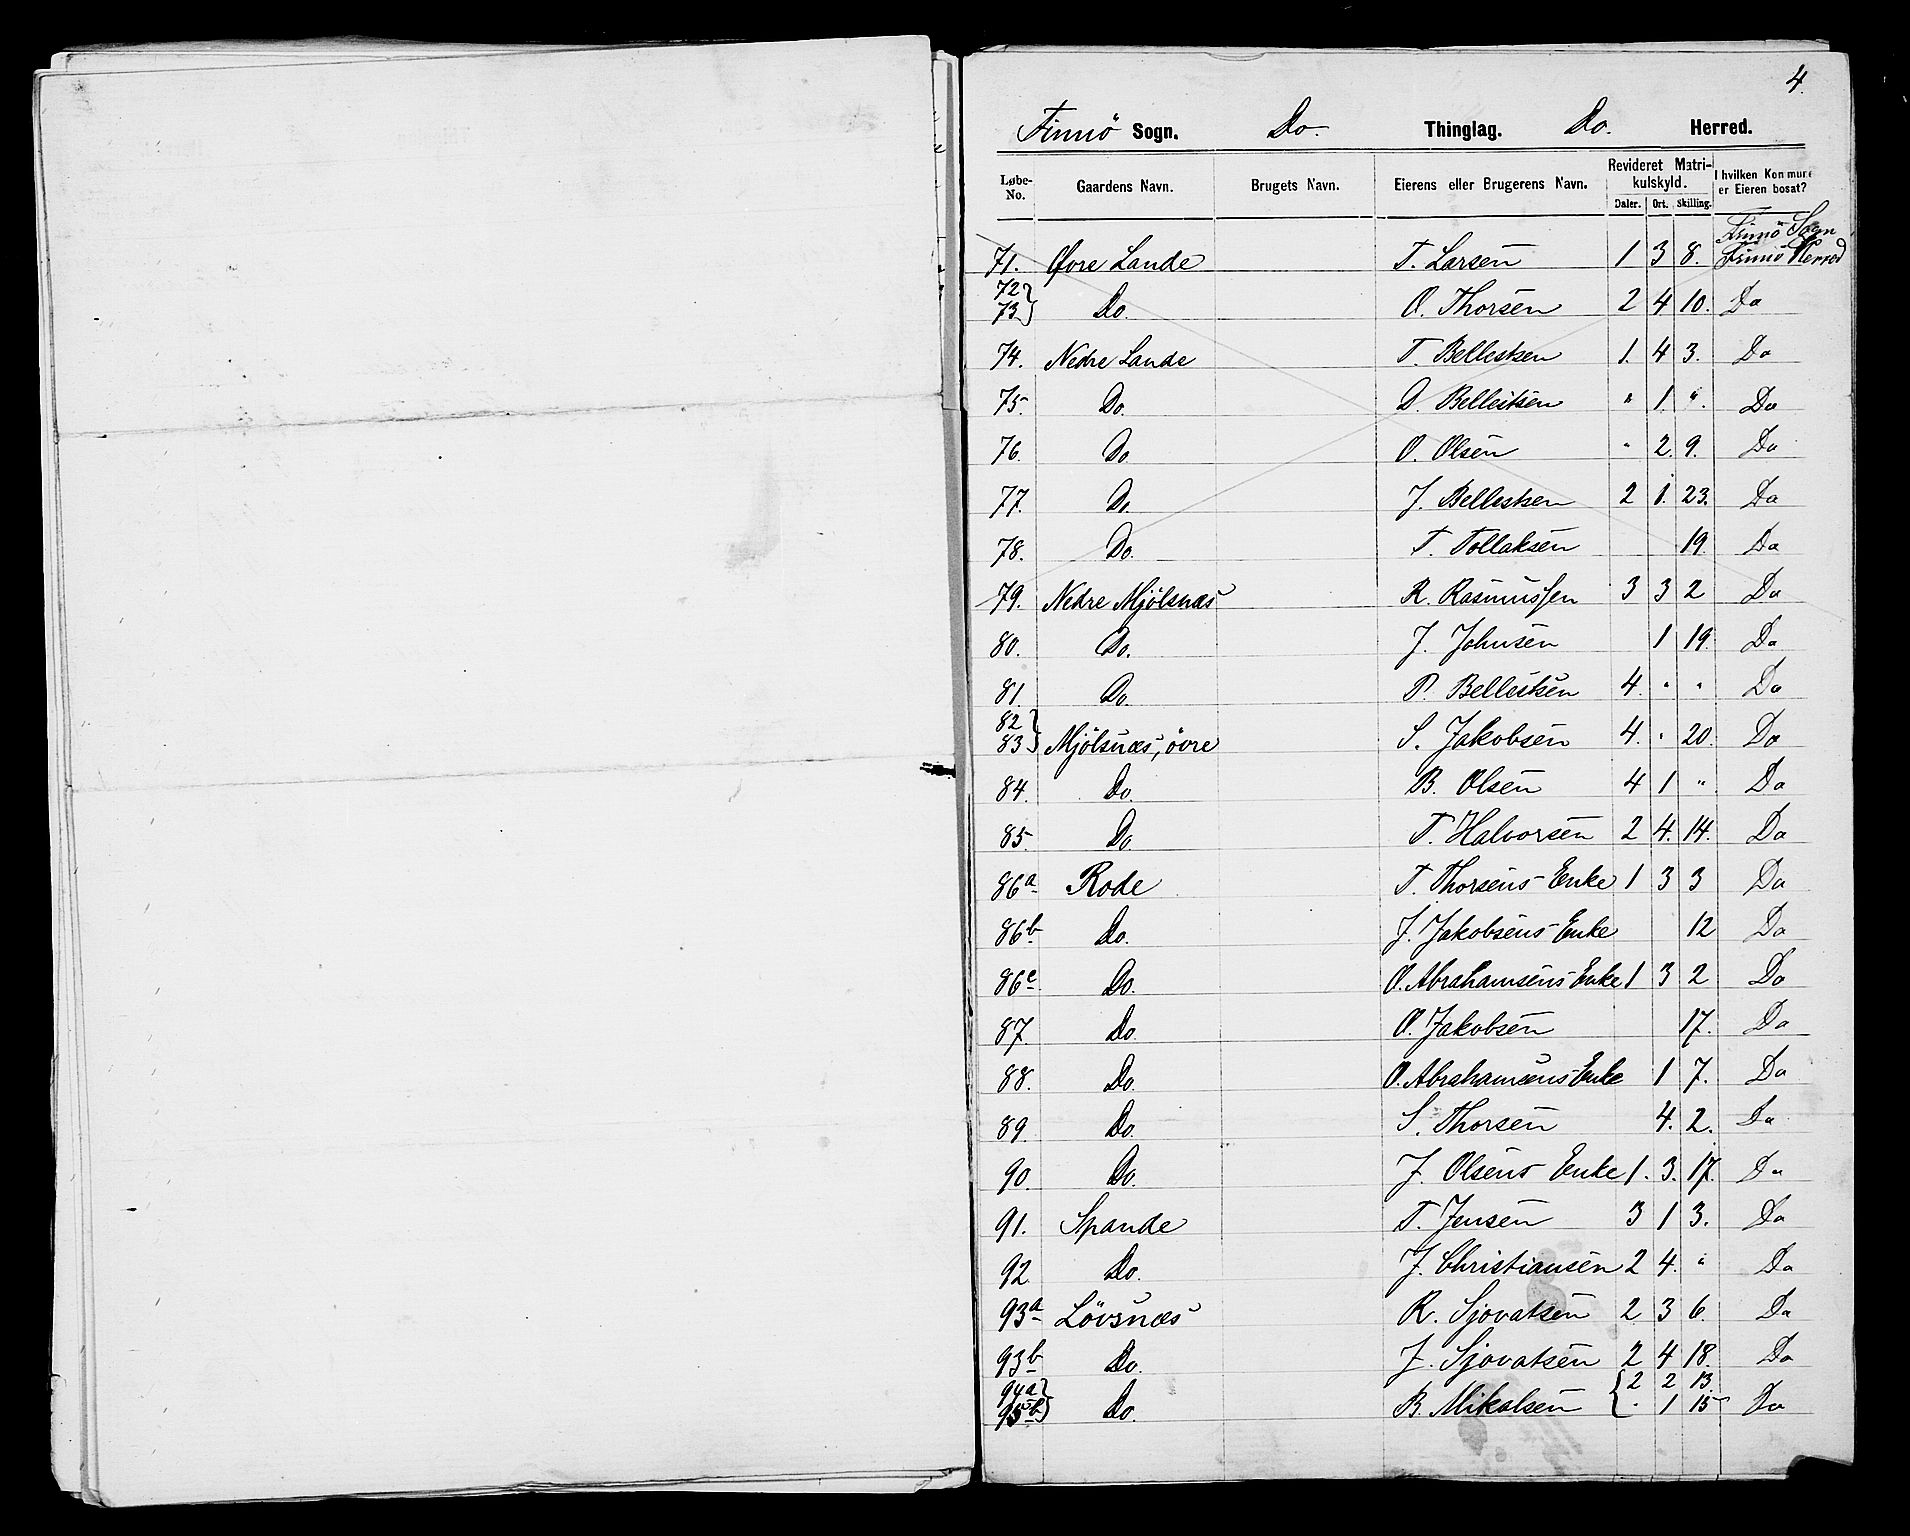 4.
Finnö Sogn. Do. Thinglag. Do. Herred.
Løbe-No. Gaardens Navn. Brugets Navn. Eierens eller Brugerens Navn. Revideret Matrikulskyld. Daler. Ort. Skilling. I hvilken Kommune er Eieren bosat?
Finnö Sogn
71. Øvre Lande T. Larsen 1 3 8. Finnö Herred
72 73 } Do. O. Thorsen 2 4 10. Do
74. Nedre Lande T. Bellesken 1. 4 3. Do
75. Do. D. Belleiksen " 1. ". Do
76. Do O. Olsen " 2. 9. Do
77. Do. J. Bellesken 2 1. 23. Do
78. Do. T. Tollaksen 19. Do
79. Nedre Mjölsnæs R. Rasmussen 3 3 2 Do
80. Do. J. Johnsen 1 19. Do
81. Do. P. Belleiksen 4. " " Do
82 83 } Mjölsnæs, övre S. Jakobsen 4. " 20. Do
84. Do. B. Olsen 4 1 " Do
85. Do. T. Halvorsen 2 4. 14. Do
86a Rode T. Thorsens Enke 1 3 3 Do
86b Do. J. Jakobsens Enke 12 Do
86c Do. O. Abrahamsens Enke 1 3 2 Do
87. Do. O. Jakobsen 17. Do
88. Do. O. Abrahamsens Enke 1 7. Do
89. Do. S. Thorsen 4. 2. Do
90. Do. J. Olsens Enke 1. 3. 17. Do
91. Spande T. Jensen 3 1 3. Do
92 Do. J. Christiansen 2 4. " Do
93a Lövsnæs R. Sjovatsen 2 3 6. Do
93b Do. J. Sjovatsen 2 4 18. Do
94a 95b } Do. B. Mikalsen { 2 2 13. " 1 15 Do